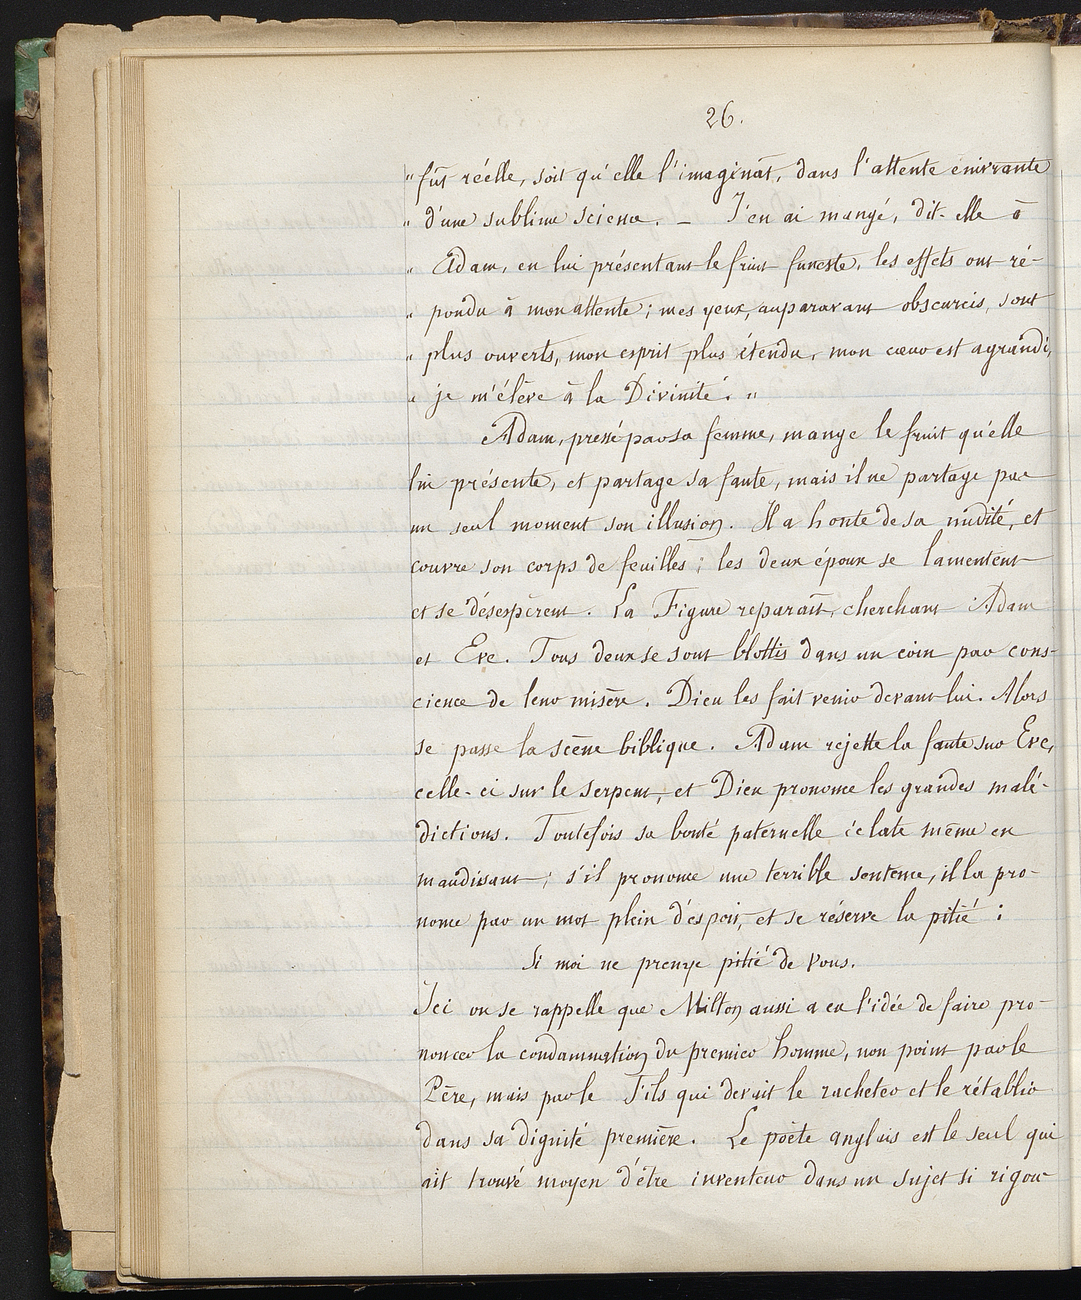 26.
" fût réelle, soit qu'elle l'imaginât, dans l'attente énivrante
" d'une sublime science. — J'en ai mangé, dit-elle à
" Adam, en lui présentant le fruit funeste, les effets ont ré-
" pondu à mon attente ; mes yeux, auparavant obscurcis, sont
" plus ouverts, mon esprit plus étendu, mon cœur est agrandi,
" je m'élève à la Divinité. "
Adam, pressé par sa femme, mange le fruit qu'elle
lui présente, et partage sa faute, mais il ne partage pas
un seul moment son illusion. Il a honte de sa nudité, et
couvre son corps de feuilles ; les deux époux se lamentent
et se désespèrent. La Figure reparaît, cherchant Adam
et Eve. Tous deux se sont blottis dans un coin par cons-
cience de leur misère. Dieu les fait venir devant lui. Alors
se passe la scène biblique. Adam rejette la faute sur Eve,
celle-ci sur le serpent, et Dieu prononce les grandes malé-
dictions. Toutefois sa bonté paternelle éclate même en
maudissant ; s'il prononce une terrible sentence, il la pro-
nonce par un mot plein d'espoir, et se réserve la pitié :
Si moi ne prenge pitié de vous.
Ici on se rappelle que Milton aussi a eu l'idée de faire pro-
noncer la condamnation du premier homme, non point par le
Père, mais par le Fils qui devait le racheter et le rétablir
dans sa dignité première. Le poète anglais est le seul qui
ait trouvé moyen d'être inventeur dans un sujet si rigou-